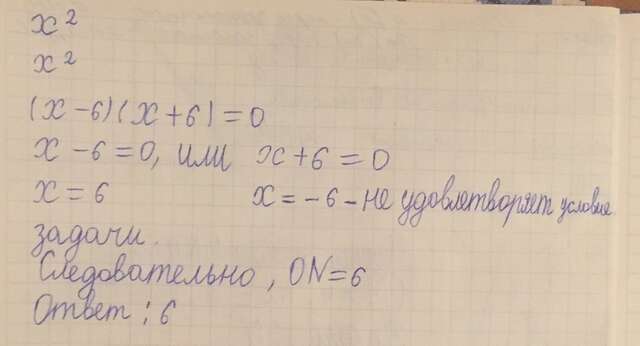 x²
x²
(x-6)(x+6)=0
x-6=0, или x+6=0
x=6 x=-6-не удовлетворяет условие
задачи.
Следовательно, ON=6
Ответ: 6